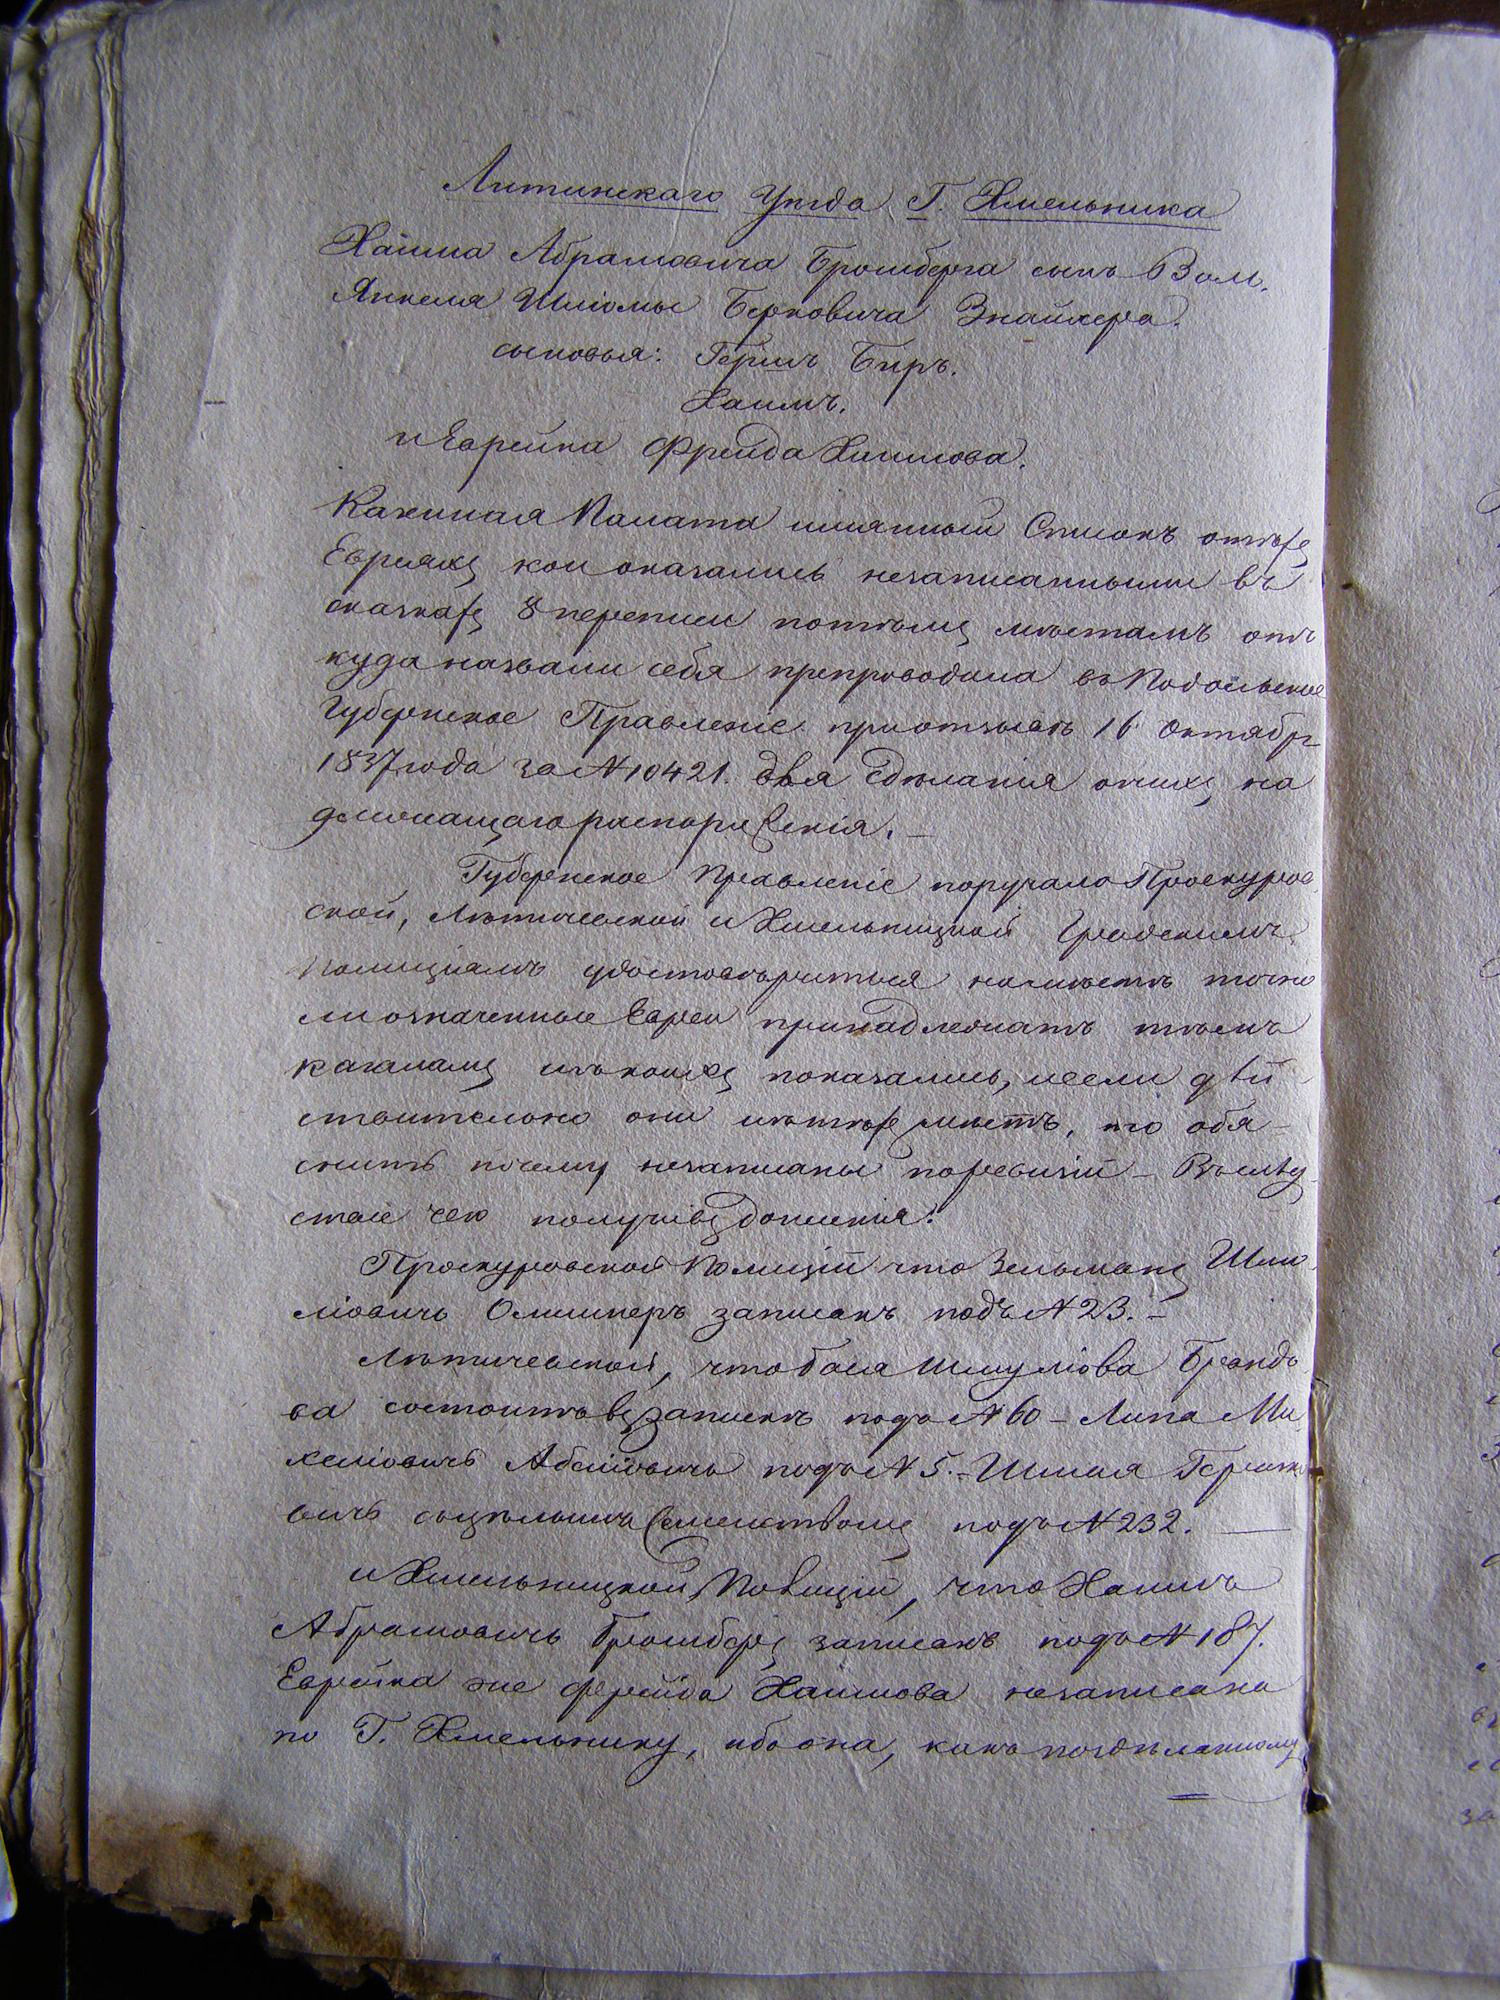 Литинскаго Уѣзда Г. Хмельника
Хаима Абрамовича Бромберга сынъ Вол.
Янкеля Шліомы Берковича Знайхера.
сыновья: Гершъ Беръ.
Хаимъ.
и Еврейка Фрейда Хаимова.
Казенная Палата имянный Списокъ о тѣхъ
Евреяхъ кои оказались незаписанными въ
сказкахъ 8 переписи по тѣмъ мѣстамъ отъ
куда назвали себя препроводила въ Подольское
Губернское Правленіе при отзывѣ 16 Октября
1837 года за N 10421. для сдѣланія о нихъ на
длежащаго распоряженія. —
Губернское Правленіе поручало Проскуров
ской, Лѣтичевской и Хмельницкой Градскимъ
Полиціямъ удостовѣриться на мѣстѣ точно
ли означенные Евреи принадлежатъ тѣмъ
кагаламъ къ коимъ показались, и если дѣй
ствительно они изъ тѣхъ мѣстъ, то объя-
снить почему незаписаны по ревизіи — Въ слѣд
ствіе чего получивъ донесенія:
Проскуровской Полиціи что Зельманъ Шлио
міовичь записанъ подъ N 23. —
Лѣтичевской, что Бася Шмуліова Брандо
ва состоитъ въ запискѣ подъ N 60 — Липа Ми
хеліовичь подъ N 5. — Шмая Гершко
вичь съ цѣлымъ Семействомъ подъ N 232. —
и Хмельницкой Полиціи, что Хаимъ
Абрамовичь Бромбергъ записанъ подъ N 187.
Еврейка же Фрейда Хаимова незаписана
по Г. Хмельнику, ибо она, какъ по сдѣланному